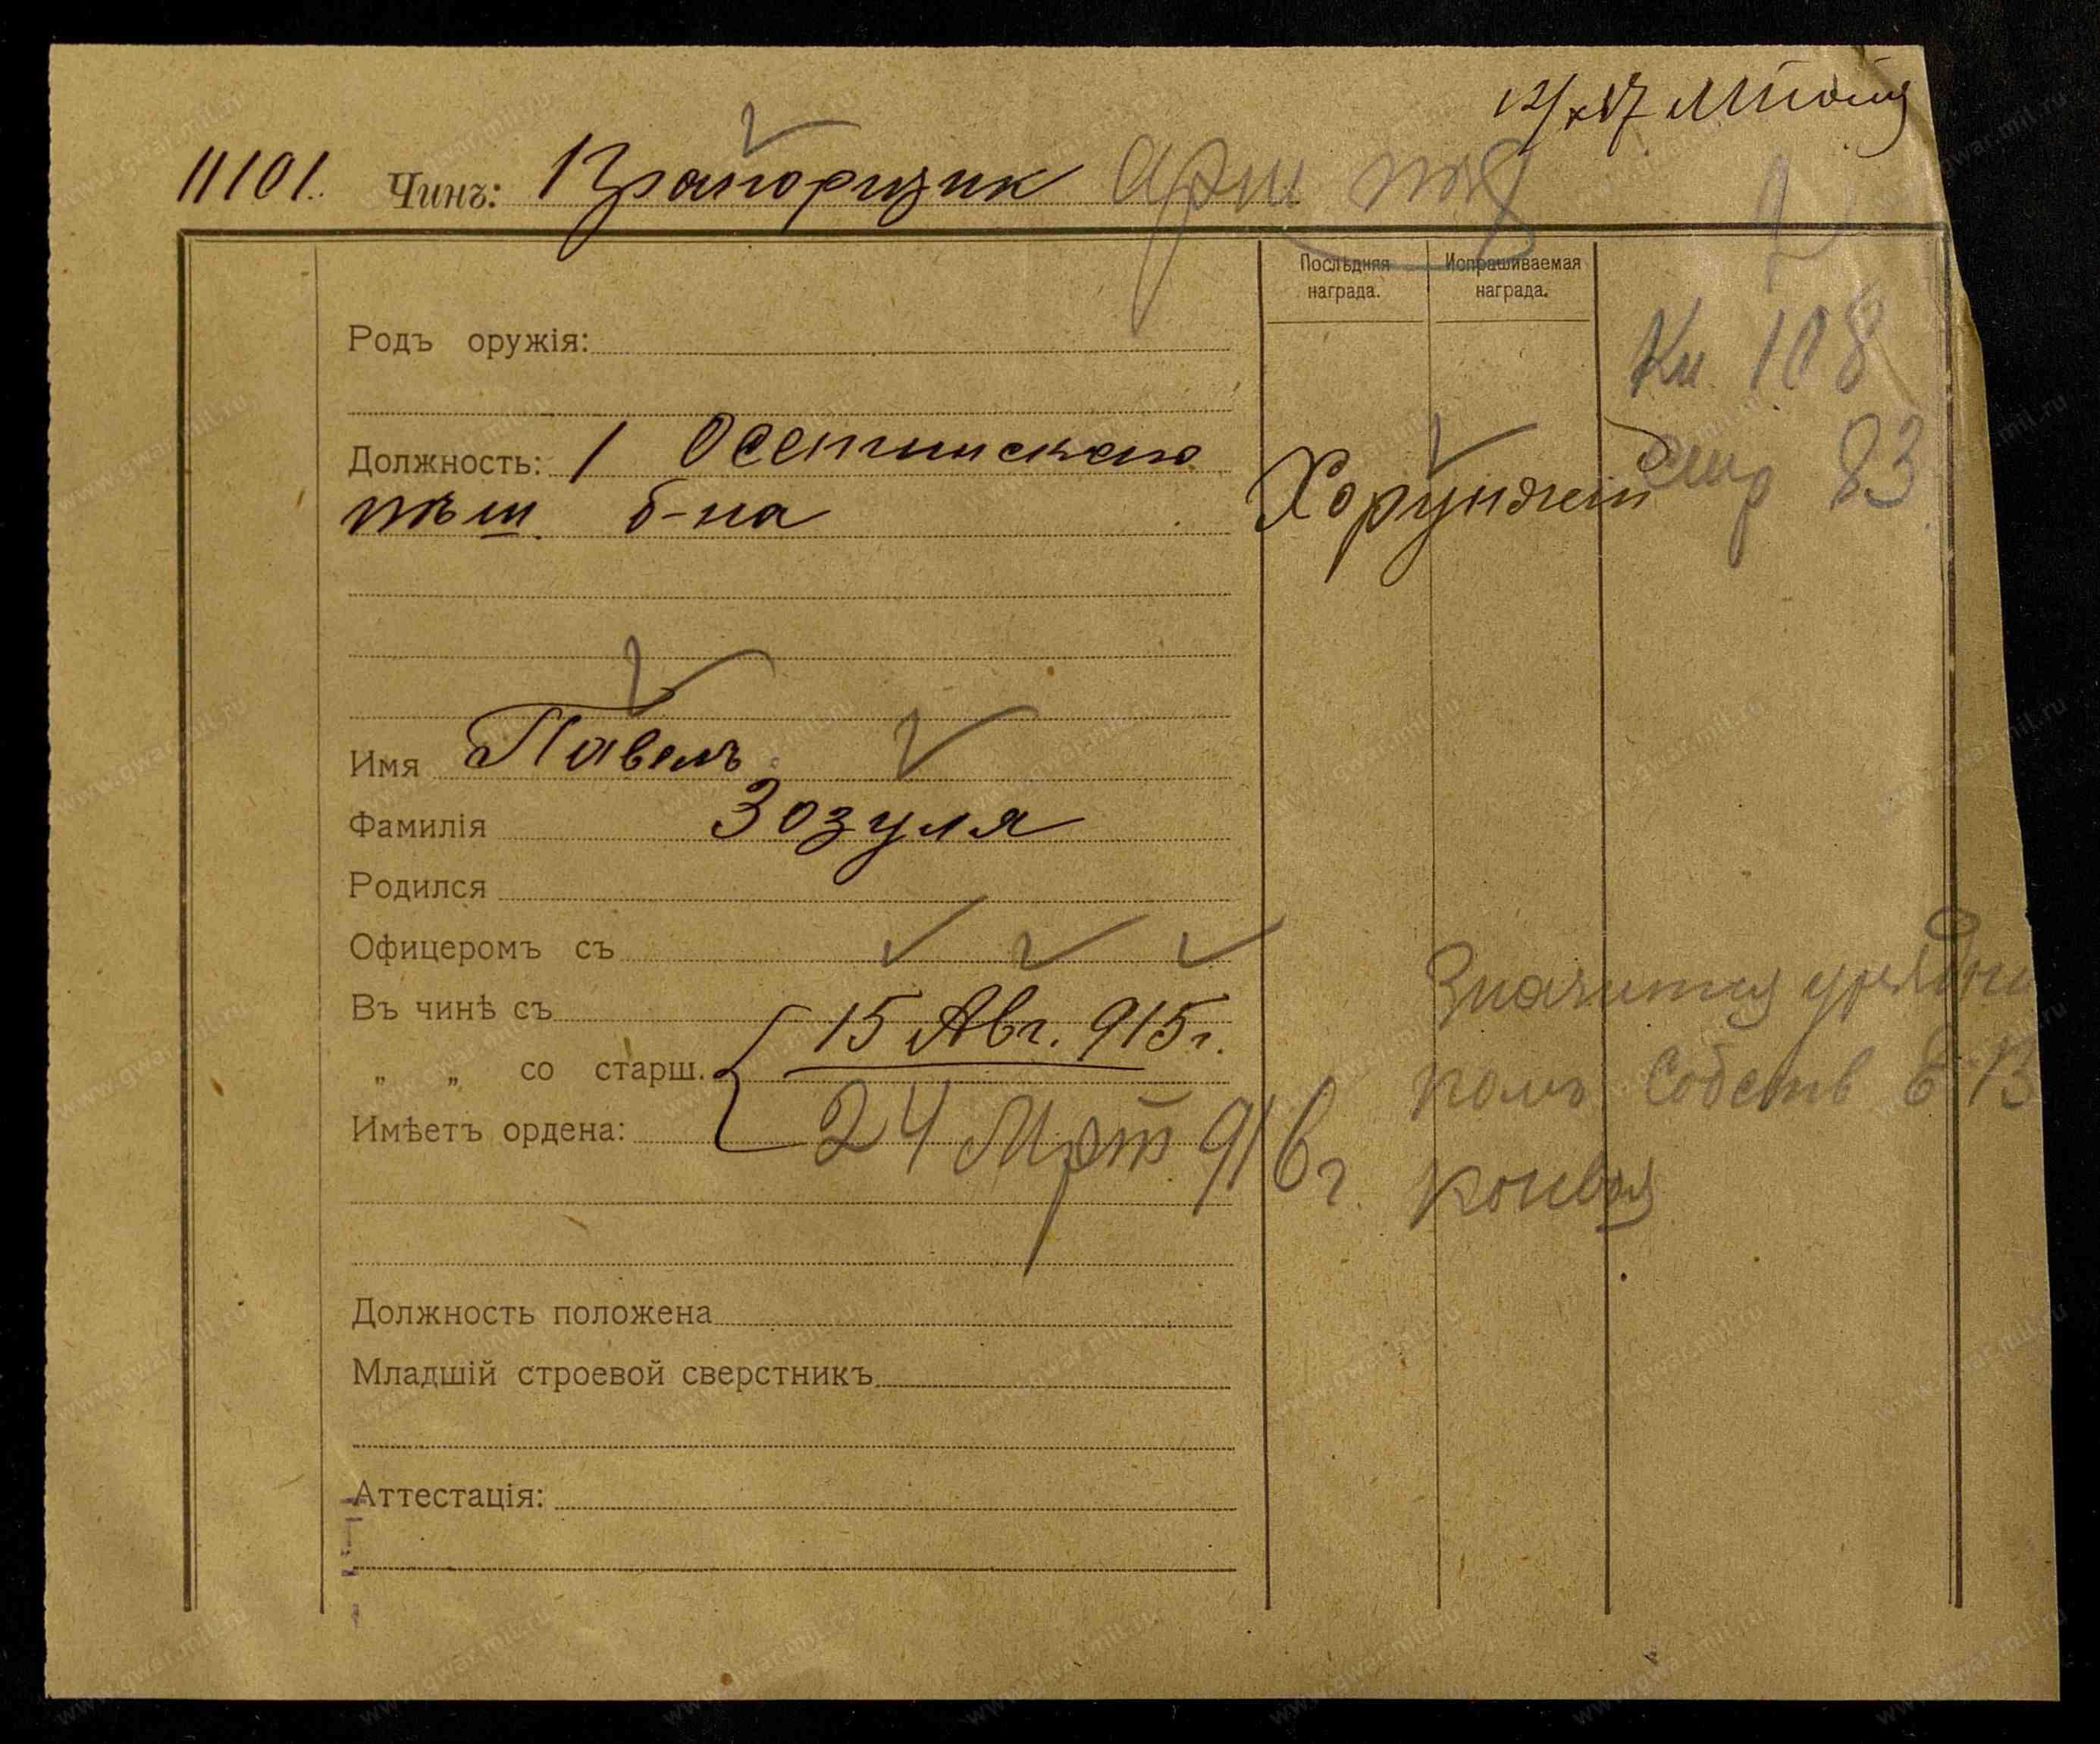 12/x 17
11101. Чинъ: Прапорщик арм пѣх
Послѣдняя награда.
Испрашиваемая награда.
Родъ оружія:
Кн. 108
Должность: 1 Осетинскаго
стр 83
пѣш. б-на
Хорунжій
Имя Павелъ
Фамилія Зозуля
Родился
Офицеромъ съ
Значится урядни
Въ чинѣ съ 15 Авг. 915 г.
„ „ со старш.
комъ Собств Е В
Имѣетъ ордена: 24 Март 916 г.
конвоя
Должность положена
Младшій строевой сверстникъ
Аттестація: